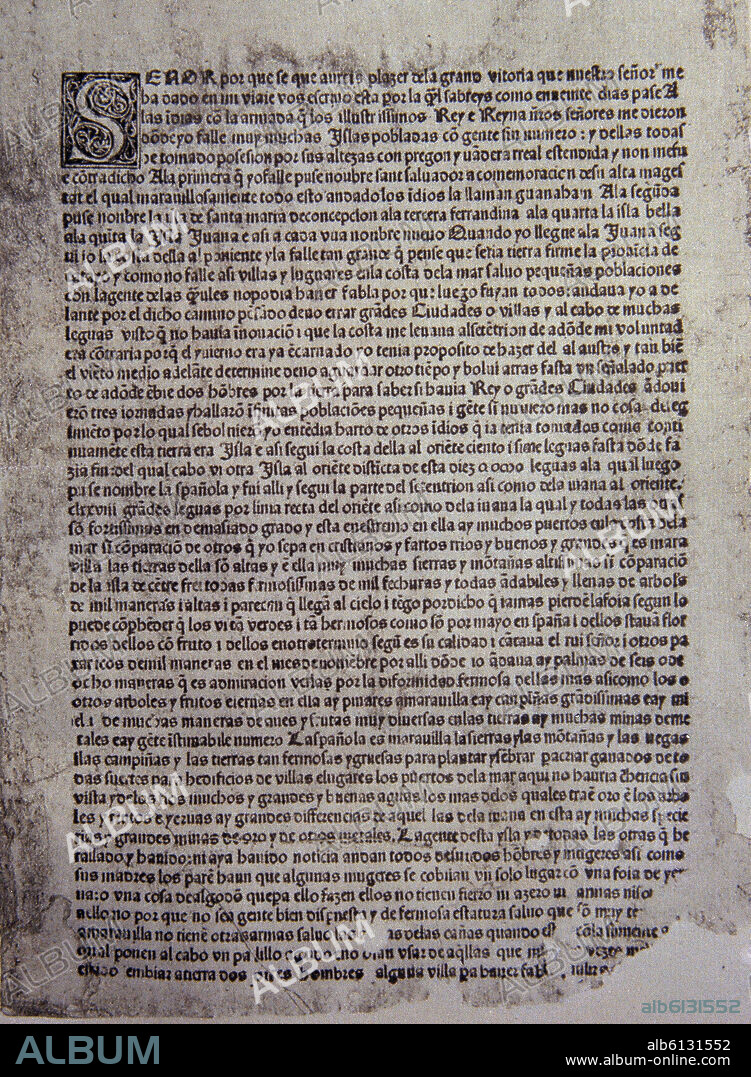 SEÑOR por que se que aureis plazer dela grand vitoria que nuestro señor me
ha dado en mi viaje vos escriuo esta por la q̃l sabreys como enueinte dias pase A
las īdias cō la armada q̃ los illustrissimos Rey e Reyna ñros señores me dieron
dōde yo falle muy muchas Islas pobladas cō gente sin numero : y dellas todas
he tomado posesion por sus altezas con pregon y uādera rreal estendida y non mefu
e cōtradicho Ala primera q̃ yofalle puse nonbre sant saluador a comemoracion desu alta mages
tat el qual marauillosamente todo esto andadolos īdios la llaman guanaham Ala segūda
puse nonbre la isla de santa maria deconcepcion ala tercera ferrandina ala quarta la isla bella
ala quīta la Isla Juana e asi a cada vna nonbre nueuo Quando yo llegue ala Juana seg
ui io la costa della al poniente yla falle tan grande q̃ pense que seria tierra firme la prouicia de
catayo y como no falle asi villas y luguares enla costa dela mar saluo pequeñas poblaciones
con lagente delas q̃ules nopodia hauer fabla por que luego fuyan todos: andaua yo a de
lante por el dicho camino pēsado deno errar grādes Ciudades o villas y al cabo de muchas
leguas visto q̃ no hauia īnouaciō i que la costa me leuaua alsetētrion de adōde mi voluntad
era cōtraria porq̃ el yuierno era ya ēcarnado yo tenia proposito de hazer del al austro y tan biē
el viēto medio adelāte determine deno aguardar otro tiēpo y bolui atras fasta vn señalado puer
to de adōde ēbie dos hōbres por la tierra para saber si hauia Rey o grādes Ciudades ādoui
erō tres iornadas yhallarō īfinitas poblaciōes pequeñas i gēte sī numero mas no cosa deleg
imēto por lo qual sebolnierō yo entēdia harto de otros īdios q̃ ia tenia tomados como conti
nuamēte esta tierra era Isla e asi segui la costa della al oriēte ciento i siete leguas fasta dōde fa
zia fin: del qual cabo vi otra Isla al oriēte distīcta de esta diez o ocho leguas ala qual luego
puse nombre la spañola y fui alli y segui la parte del setentrion asi como dela iuana al oriente.
clxxviii grādes leguas por linia recta del oriēte asi como dela iuana la qual y todas las otras
sō fortissimas en demasiado grado y esta enestremo en ella ay muchos puertos enla costa dela
mar sī cōparaciō de otros q̃ yo sepa en cristianos y fartos rrios y buenos y grandes q̃ es mara
villa las tierras della sō altas y ē ella muy muchas sierras y mōtañas altissimas sī cōparaciō
de la isla de cētre frei todas fermosissimas de mil fechuras y todas ādabiles y llenas de arbols
de mil maneras i altas i parecen q̃ llegā al cielo i tēgo pordicho q̃ iamas pierdē lafoia segun lo
puede cōphēder q̃ los vi tā verdes i tā hermosos como sō por mayo en spaña i dellos stauā flor
ridos dellos cō fruto i dellos enotrotermino segū es su calidad i cātaua el rui señor i otros pa
xaricos demil maneras en el mes de nouiēbre por alli dōde io ādaua ay palmas de seis ode
ocho maneras q̃ es admiracion verlas por la diformidad fermosa dellas mas asicomo los o
otros arboles y frutos eiernas en ella ay pinares amarauilla eay canpiñas grādissimas eay mi
el i de muchas maneras de aues y frutas muy diuersas enlas tierras ay muchas minas deme
tales eay gēte īstimabile numero Laspañola es marauilla lasierras ylas mōtañas y las uegas
ilas campiñas y las tierras tan fermosas ygruesas para plantar ysēbrar pacriar ganados de to
das suertes para hedificios de villas elugares los puertos dela mar aqui no hauria chencia sin
vista ydelos rios muchos y grandes y buenas aguas los mas delos quales traē oro ē los arbo
les y frutos e yeruas ay grandes differencias de aquel las dela iuana en esta ay muchas specie
rias y grandes minas de oro y de otros metales. Lagente desta ysla y de todas las otras q̃ he
fallado y hauido: ni aya hauido noticia andan todos desnudos hōbres y mugeres asi como
sus madres los parē haun que algunas mugeres se cobrian vn solo lugar cō vna foia de yer
ua: o vna cosa dealgodō quepa ello fazen ellos no tienen fierro ni azero ni armas niso
aello no por que no sea gente bien dispuesta y de fermosa estatura saluo que sō muy te
amarauilla no tienē otras armas saluo las as delas cañas quando es cōla simiente
qual ponen al cabo vn pa lillo agudo eno osan vsar de aq̃llas que m vezes
embiar atierra dos o tres hombres alguna villa pa hauer fabl